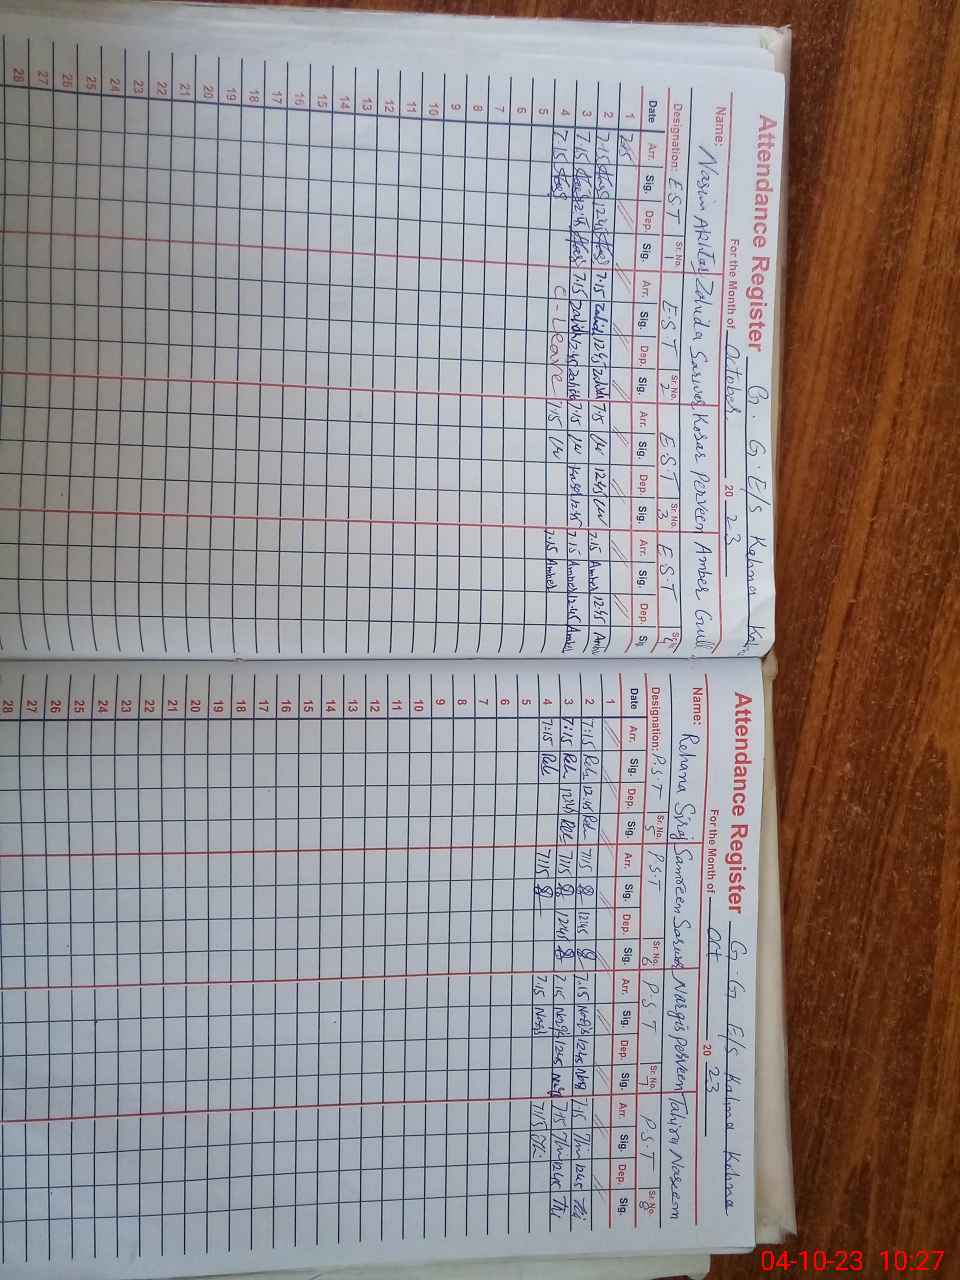 Attendance Register G. G. E/S Kahna Kahna
For the Month of October. 20 23
Name: Nasim Akhtar Zahida Sarwar Kosar Perveen Amber Gull
Designation: EST Sr. No. 1 E.S.T Sr. No. 2 E.S.T Sr. No. 3 E.S.T
Date Arr. Sig. Dep. Sig. Arr. Sig. Dep. Sig. Arr. Sig. Dep. Sig. Arr. Sig. Dep.
1 7.15
2 7.15 12.45 7.15 Zahida 12.45 Zahida 7.15 12.45 7.15 Amber 12.45
3 7.15 12.45 7.15 Zahida 12.45 Zahida 7.15 12.45 7.15 Amber 12.45 Amber
4 7.15 C-Leave 7.15 7.15 Amber
5
6
7
8
9
10
11
12
13
14
15
16
17
18
19
20
21
22
23
24
25
26
27
28
Attendance Register G.G E/S Kahna Kahna
For the Month of Oct 20 23
Name: Rehana Siraj Samreen Sarwar Nargis Perveen Tahira Naseem
Designation: P.S.T Sr. No. 5 P.S.T Sr. No. 6 P.S.T Sr. No. 7 P.S.T Sr. No. 8
Date Arr. Sig. Dep. Sig. Arr. Sig. Dep. Sig. Arr. Sig. Dep. Sig. Arr. Sig. Dep. Sig.
1
2 7:15 Reh 12.45 Reh 7:15 12:45 7.15 Nargis 12.45 7.15 12.45
3 7:15 Reh 12:45 Reh 7:15 12:45 7.15 Nargis 12.45 7.15 12.45
4 7:15 Reh 7:15 7.15 Nargis 7:15
5
6
7
8
9
10
11
12
13
14
15
16
17
18
19
20
21
22
23
24
25
26
27
28
04-10-23 10:27